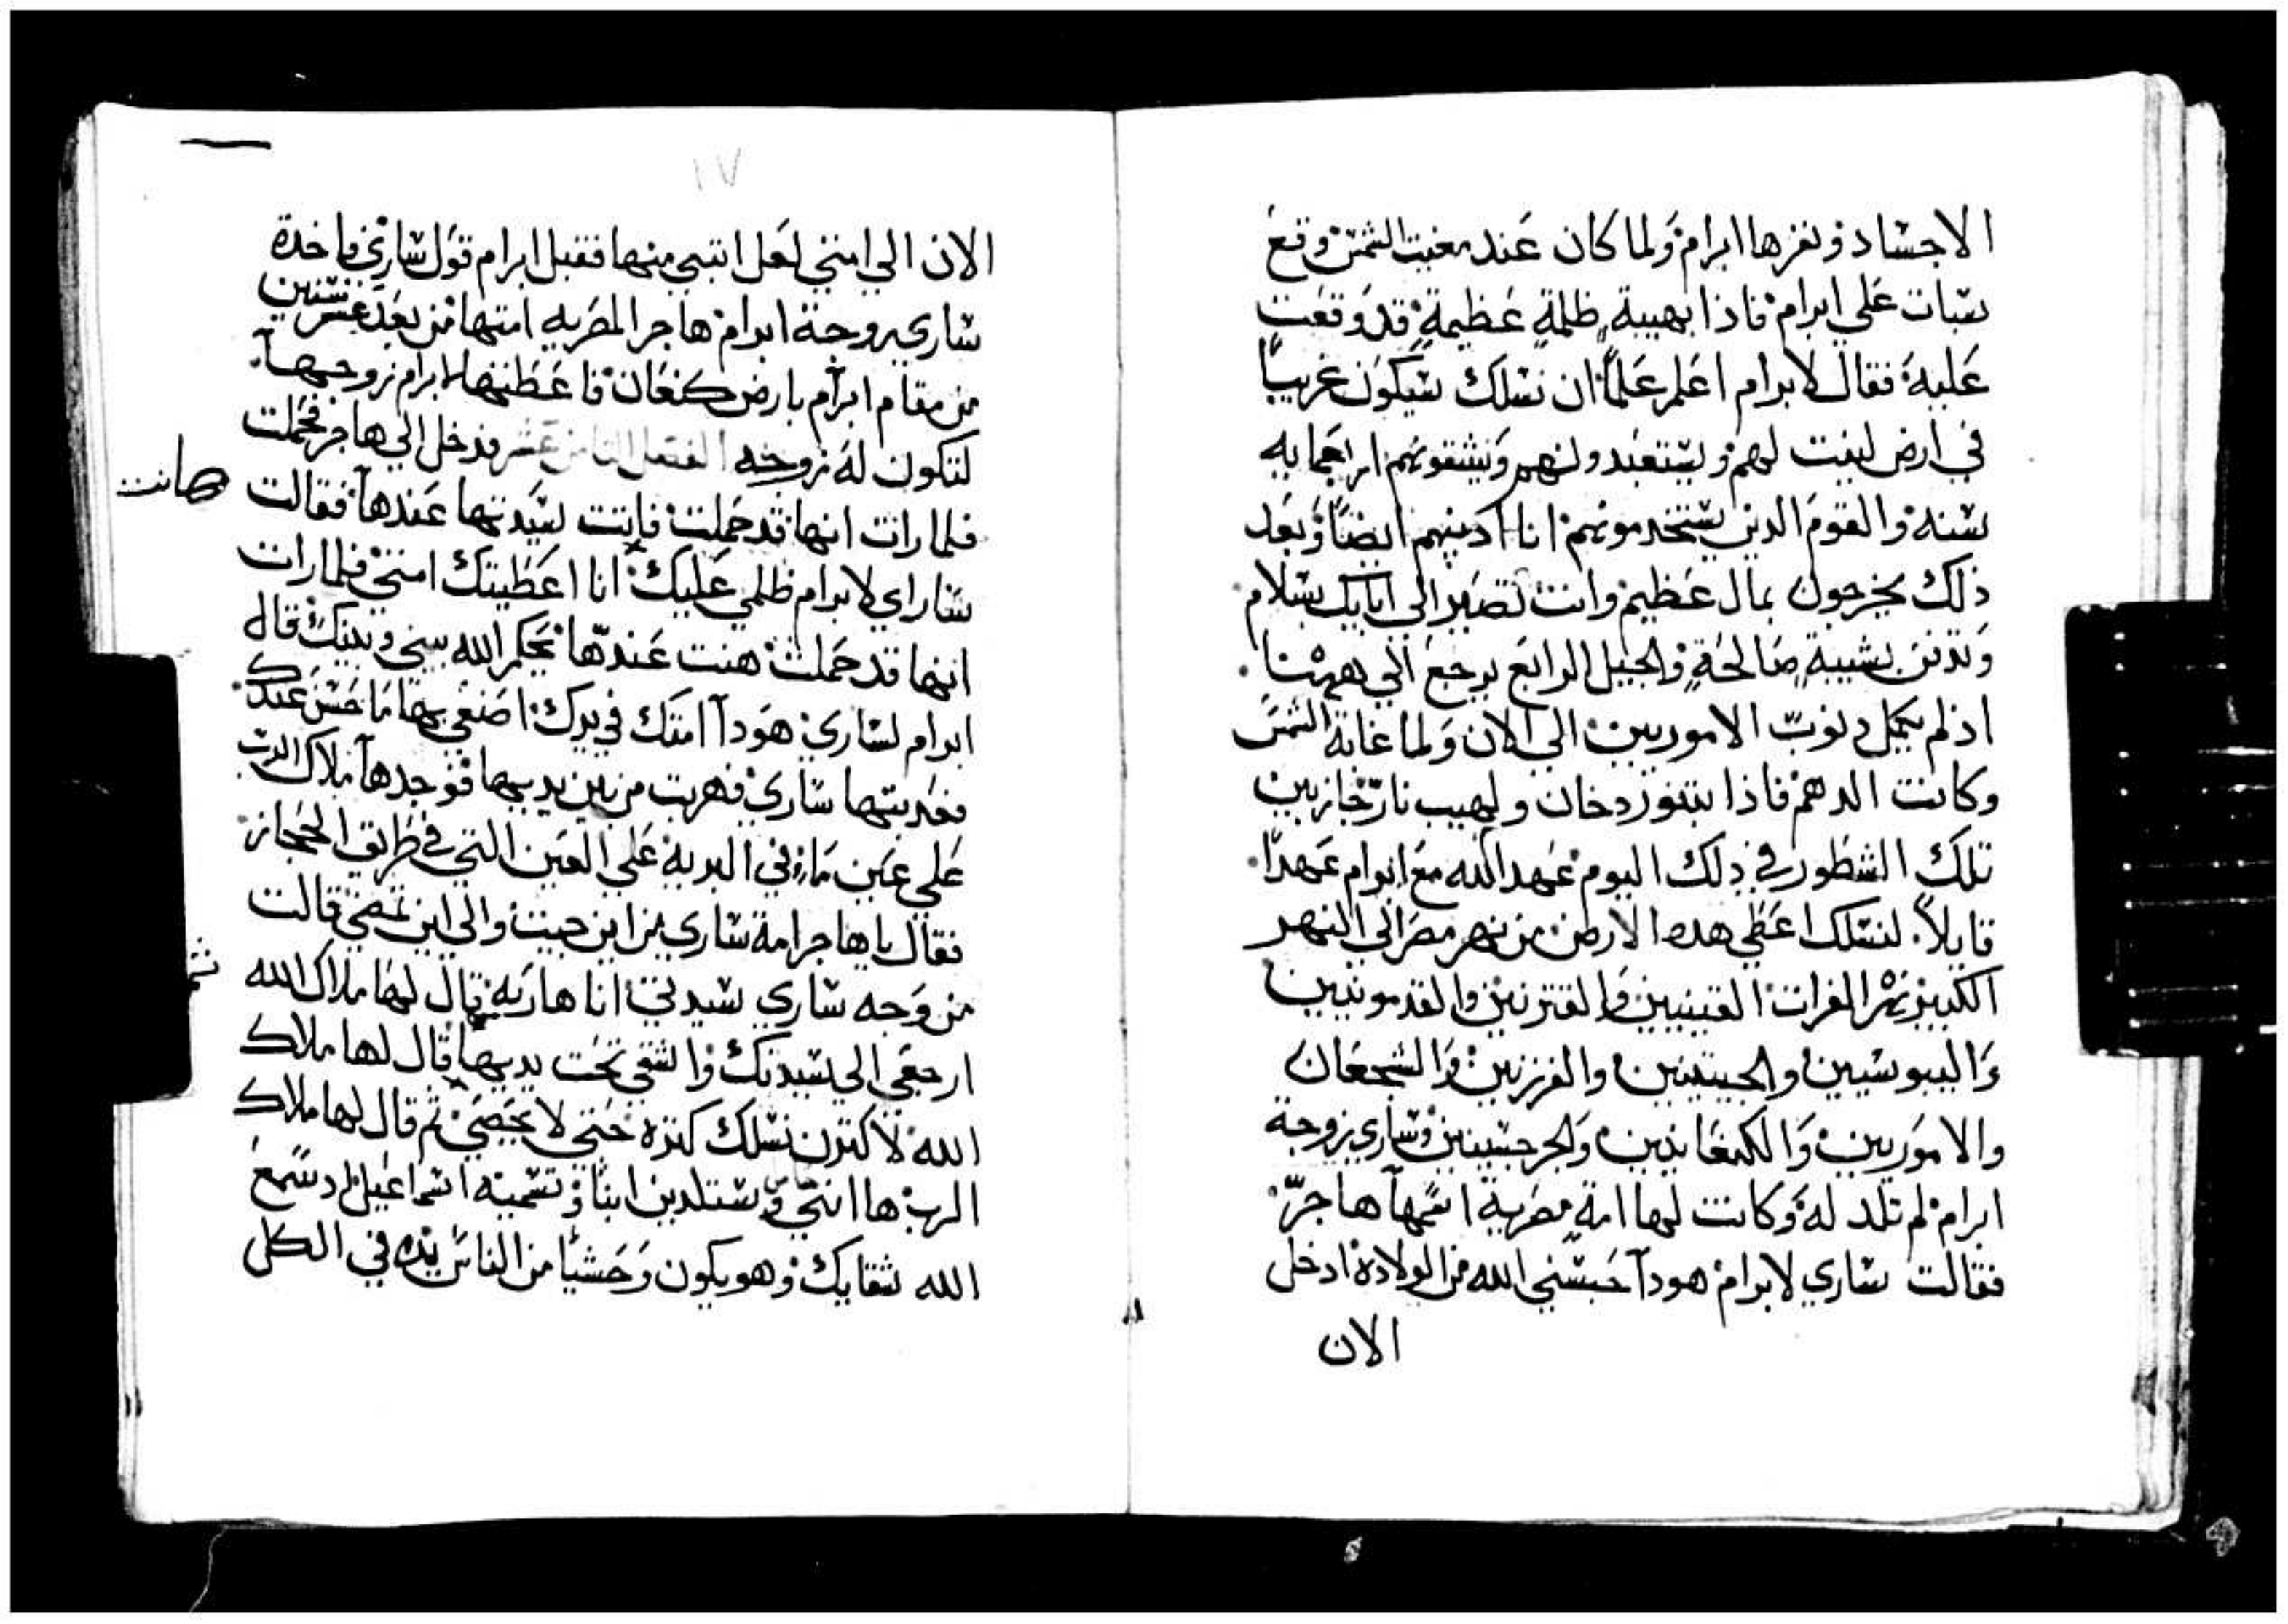 الاجساد ونفرها ابرام ولما كان عند مغيب الشمس وقع
سبات علي ابرام فاذا بهيبة ظلمة عظيمة قد وقعت
عليه فقال لابرام اعلم علماً ان نسلك سيكون غريباً
في ارض ليست لهم ويستعبدونهم ويشقونهم اربعمايه
سنه والقوم الدين يستخدمونهم انا ادينهم ايضاً وبعد
ذلك يخرجون بمال عظيم وانت تصير الى ابايك بسلام
وتدفن بشيبة صالحة والجيل الرابع يرجع الي ههنا
اذ لم يكمل دنوب الاموريين الي الان ولما غابة الشمس
وكانت الدهم فاذا بتنور دخان ولهيب نار جاز بين
تلك الشطور في دلك اليوم عهد الله مع ابرام عهداً
قايلاً لنسلك اعطي هده الارض من نهر مصر الي النهر
الكبير نهر الفرات القينيين والقنزيين والقدمونيين
واليبوسيين والحيتيين والفرزيين والشجعان
والاموريين والكنعانيين والجرجسيين وساري زوجة
ابرام لم تلد له وكانت لها امة مصرية اسمها هاجر
فقالت ساري لابرام هودا حبسني الله من الولادة ادخل
الان
١٧
الان الي امتي لعل ابتني منها فقبل ابرام قول ساري فاخدة
ساري زوجة ابرام هاجر المصريه امتها من بعد عشر سنين
من مقام ابرام بارض كنعان فاعطتها لابرام زوجها
لتكون له زوجه الفصل السادس عشر فدخل الي هاجر فحملت
فلما رات انها قد حملت فانت سيدتها عندها فقالت
هانت
ساراي لابرام ظلمي عليك انا اعطيتك امتي فلما رات
انها قد حملت هنت عندها يحكم الله بيني وبينك قال
ابرام لساري هودا امتك في يدك اصنعي بها ما حسن عندك
فعدبتها ساري فهربت من بين يديها فوجدها ملاك الرب
علي عين ماء في البرية علي العين التي في طريق الحجاز
فقال يا هاجر امة ساري من اين جيت والي اين تمضي قالت
من وجه ساري سيدتي انا هاربة قال لها ملاك الله
ثم
ارجعي الى سيدتك واشقي تحت يديها قال لها ملاك
الله لاكترن نسلك كترة حتي لا يحصي ثم قال لها ملاك
الرب ها انتي وستلدين ابناً وتسميه اسماعيل اد سمع
الله شقايك وهو يكون وحشياً من الناس يده في الكل